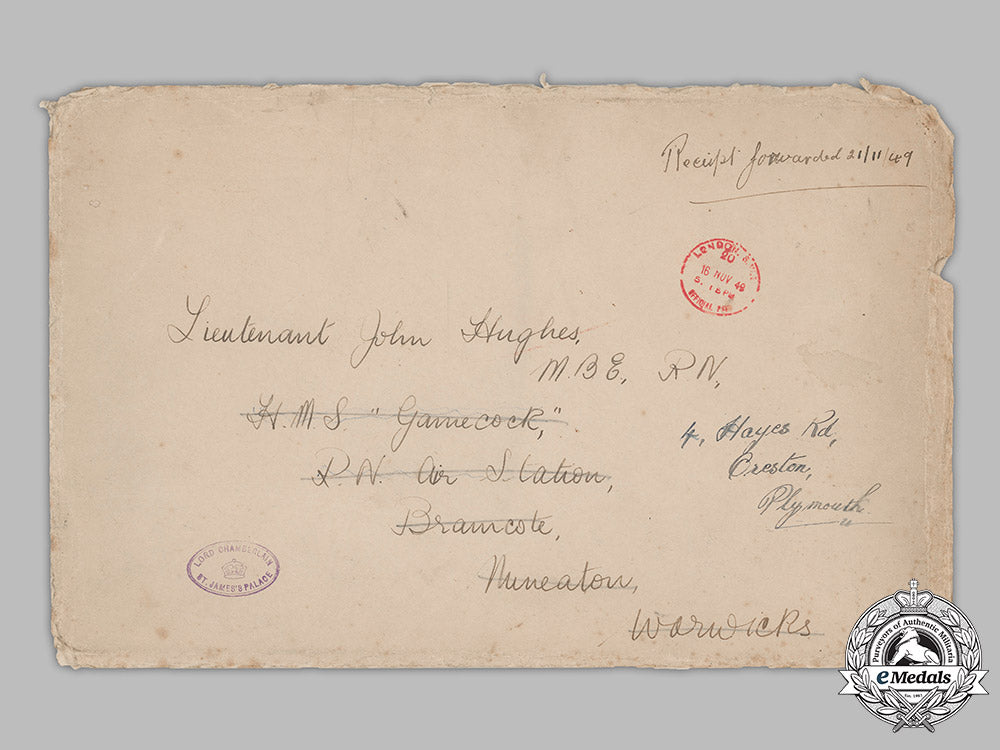 Receipt forwarded 21/11/49
LONDON, S.W.1
20
16 NOV 49
5. 15 PM
OFFICIAL PAID
Lieutenant John Hughes,
M.B.E, R N,
H.M.S "Gamecock,"
R.N. Air Station,
Bramcote,
Nuneaton,
Warwicks
4, Hayes Rd,
Oreston,
Plymouth
LORD CHAMBERLAIN
ST. JAMES'S PALACE
Purveyors of Authentic Militaria
eMedals